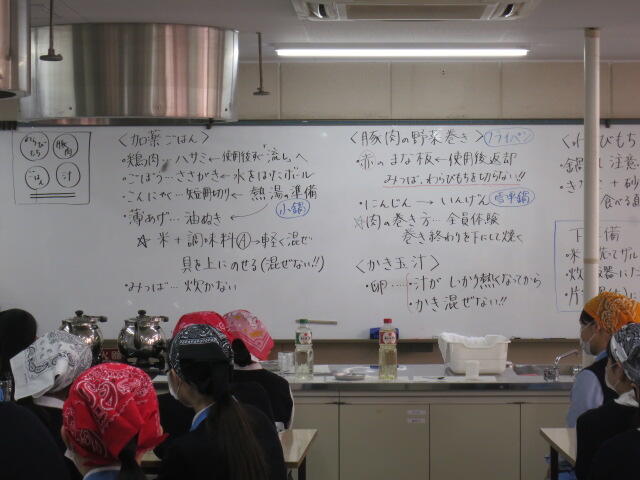 わらび
もち
豚肉
ごはん
汁
<加薬ごはん>
・鶏肉…ハサミ←使用後まず「流し」へ
・ごぼう…ささがき←水をはりくボール
・こんにゃく…短冊切り←熱湯の準備
小鍋
・薄あげ…油ぬき
☆米+調味料④→軽く混ぜ
具を上にのせる(混ぜない!!)
・みつば…炊かない
<豚肉の野菜巻き>
フライパン
・赤のまな板←使用後返却
みつば、わらびもちを切らない!!
・にんじん→いんげん
☆肉の巻き方…全員体験
巻き終わりを下にして焼く
<かき玉汁>
・卵…・汁がしっかり熱くなってから
・かき混ぜない!!
びもち
注意
砂
食べる
下
備